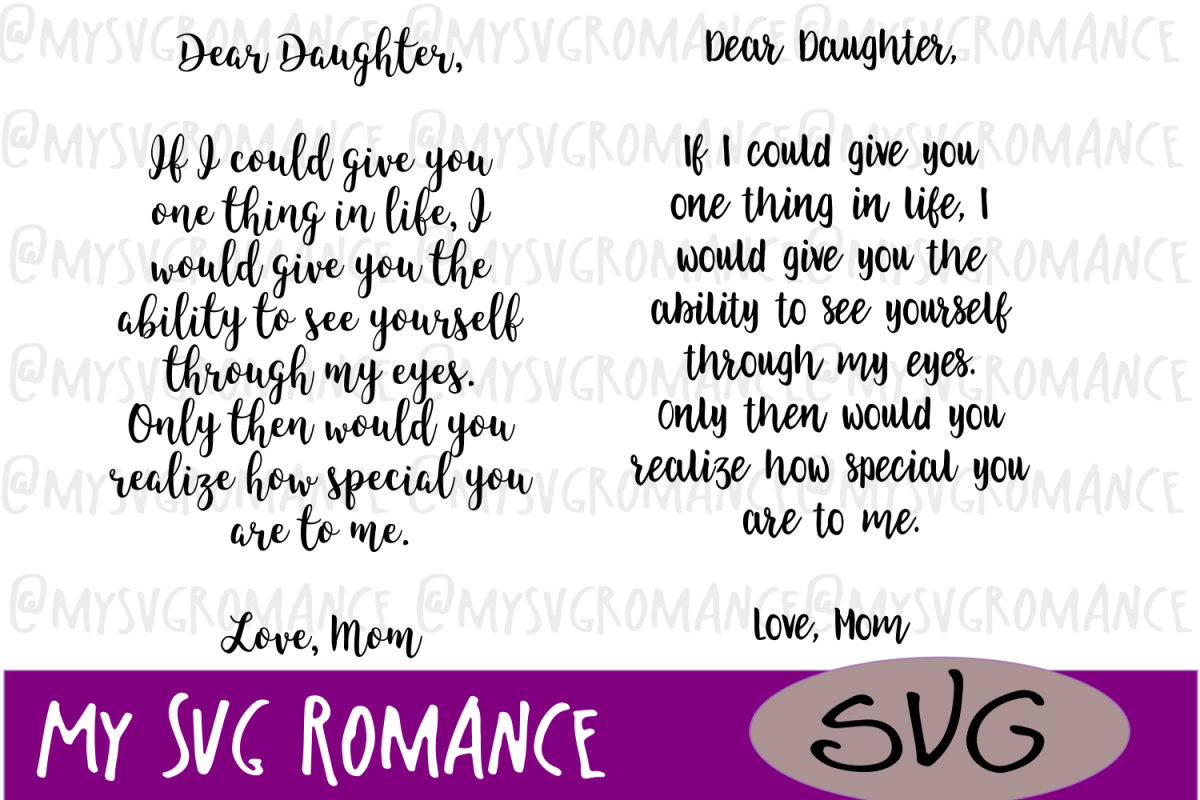 Dear Daughter,
If I could give you
one thing in life, I
would give you the
ability to see yourself
through my eyes.
Only then would you
realize how special you
are to me.
Love, Mom
Dear Daughter,
If I could give you
one thing in life, I
would give you the
ability to see yourself
through my eyes.
Only then would you
realize how special you
are to me.
Love, Mom
@MYSVGROMANCE @MYSVGROMANCE @MYSVGROMANCE
@MYSVGROMANCE @MYSVGROMANCE @MYSVGROMANCE
@MYSVGROMANCE @MYSVGROMANCE @MYSVGROMANCE
@MYSVGROMANCE @MYSVGROMANCE @MYSVGROMANCE
@MYSVGROMANCE @MYSVGROMANCE @MYSVGROMANCE
@MYSVGROMANCE @MYSVGROMANCE @MYSVGROMANCE
MY SVG ROMANCE
SVG